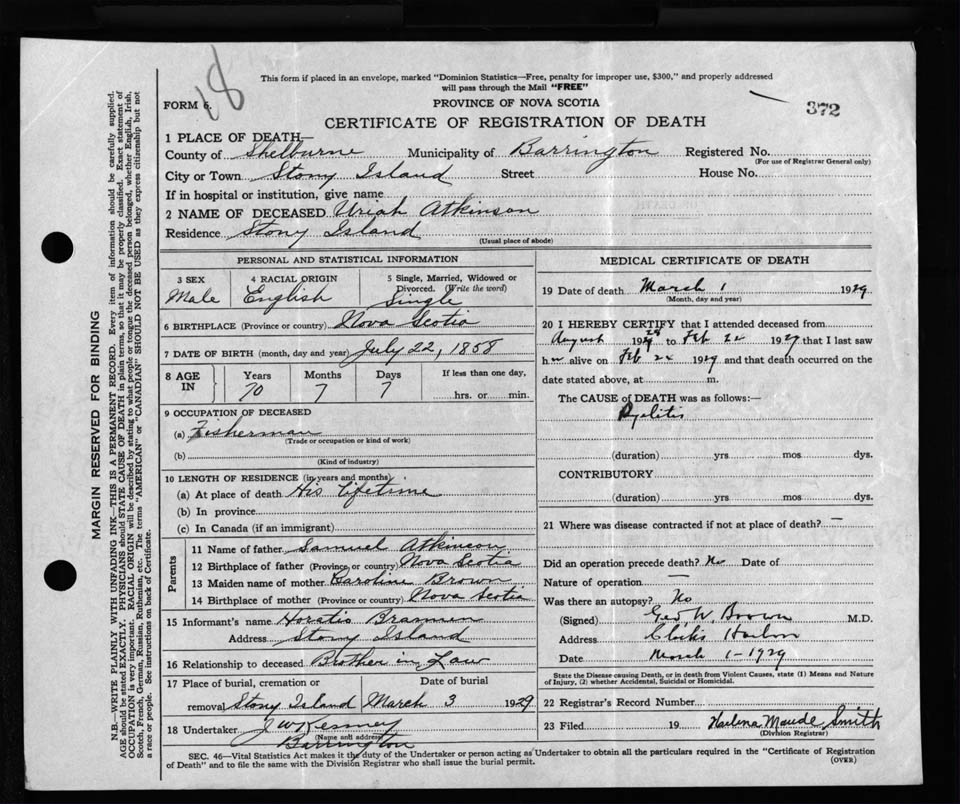 18
This form if placed in an envelope, marked "Dominion Statistics—Free, penalty for improper use, $300," and properly addressed
will pass through the Mail "FREE"
FORM 6.
PROVINCE OF NOVA SCOTIA
372
CERTIFICATE OF REGISTRATION OF DEATH
1 PLACE OF DEATH—
County of Shelburne Municipality of Barrington Registered No.
(For use of Registrar General only)
City or Town Stony Island Street House No.
If in hospital or institution, give name
2 NAME OF DECEASED Uriah Atkinson
Residence Stony Island
(Usual place of abode)
PERSONAL AND STATISTICAL INFORMATION
3 SEX 4 RACIAL ORIGIN 5 Single, Married, Widowed or
Divorced. (Write the word)
Male English Single
6 BIRTHPLACE (Province or country) Nova Scotia
7 DATE OF BIRTH (month, day and year) July 22, 1858
8 AGE IN Years Months Days If less than one day,
70 7 7 hrs. or min.
9 OCCUPATION OF DECEASED
(a) Fisherman
(Trade or occupation or kind of work)
(b)
(Kind of industry)
10 LENGTH OF RESIDENCE (in years and months)
(a) At place of death His lifetime
(b) In province
(c) In Canada (if an immigrant)
Parents
11 Name of father Samuel Atkinson
12 Birthplace of father (Province or country) Nova Scotia
13 Maiden name of mother Caroline Brown
14 Birthplace of mother (Province or country) Nova Scotia
15 Informant's name Horatio Brannen
Address Stony Island
16 Relationship to deceased Brother in Law
17 Place of burial, cremation or Date of burial
removal Stony Island March 3 1929
18 Undertaker J W Kenney
(Name and address)
Barrington
MEDICAL CERTIFICATE OF DEATH
19 Date of death March 1 1929
(Month, day and year)
20 I HEREBY CERTIFY that I attended deceased from
August 1928 to Feb 22 1929 that I last saw
h m alive on Feb 22 1929 and that death occurred on the
date stated above, at m.
The CAUSE of DEATH was as follows:—
Pyelitis
(duration) yrs mos dys.
CONTRIBUTORY
(duration) yrs mos dys.
21 Where was disease contracted if not at place of death? —
Did an operation precede death? No Date of
Nature of operation —
Was there an autopsy? No
(Signed) Geo W. Brown M.D.
Address Clarks Harbor
Date March 1-1929
State the Disease causing Death, or in death from Violent Causes, state (1) Means and Nature
of Injury, (2) whether Accidental, Suicidal or Homicidal.
22 Registrar's Record Number
23 Filed 19 Harlena Maude Smith
(Division Registrar)
SEC. 46—Vital Statistics Act makes it the duty of the Undertaker or person acting as Undertaker to obtain all the particulars required in the "Certificate of Registration
of Death" and to file the same with the Division Registrar who shall issue the burial permit.
(OVER)
MARGIN RESERVED FOR BINDING
N.B.—WRITE PLAINLY WITH UNFADING INK—THIS IS A PERMANENT RECORD. Every item of information should be carefully supplied.
AGE should be stated EXACTLY. PHYSICIANS should STATE CAUSE OF DEATH in plain terms, so that it may be properly classified. Exact statement of
OCCUPATION is very important. RACIAL ORIGIN will be described by stating to what people or tongue the deceased person belonged, whether English, Irish,
Scotch, French, German, Russian, Ruthenian, etc. The terms "AMERICAN" or "CANADIAN" SHOULD NOT BE USED as they express citizenship but not
a race or people. See instructions on back of Certificate.